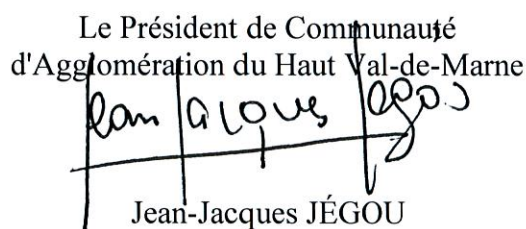 Le Président de Communauté
d'Agglomération du Haut Val-de-Marne
Jean Jacques Jégou
Jean-Jacques JÉGOU